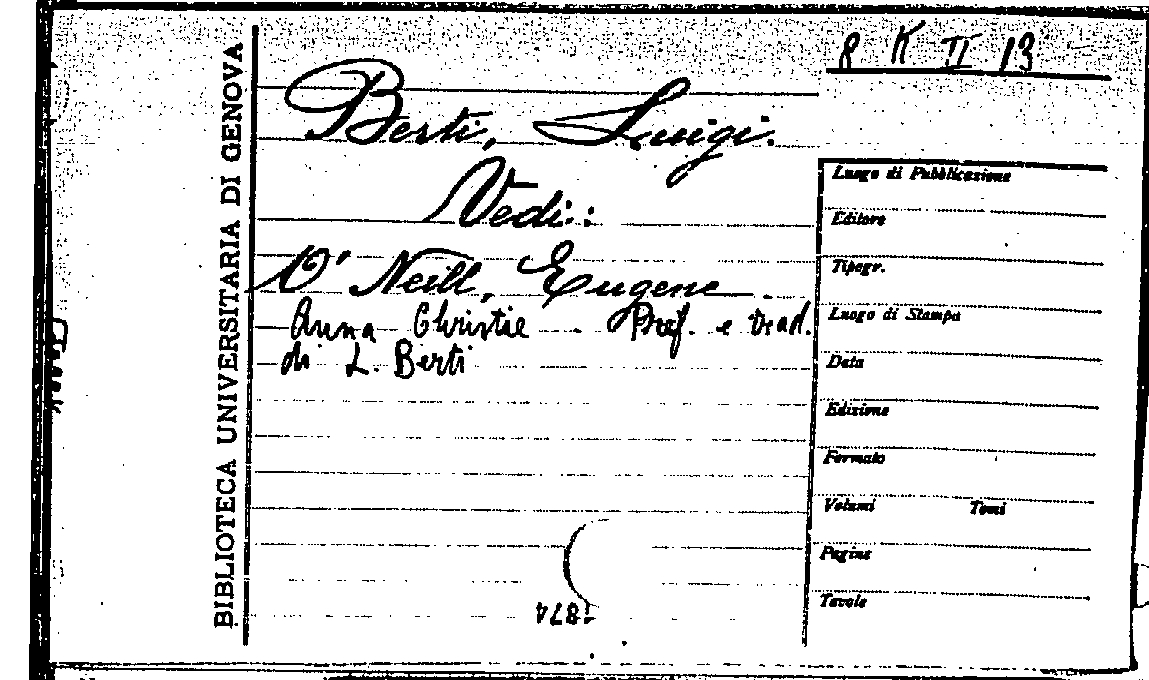 8 K II 13
BIBLIOTECA UNIVERSITARIA DI GENOVA
Berti, Luigi.
Vedi:
O' Neill, Eugene
Anna Christie . Pref. e trad.
di L. Berti
Luogo di Pubblicazione
Editore
Tipogr.
Luogo di Stampa
Data
Edizione
Formato
Volumi Tomi
Pagine
Tavole
1874